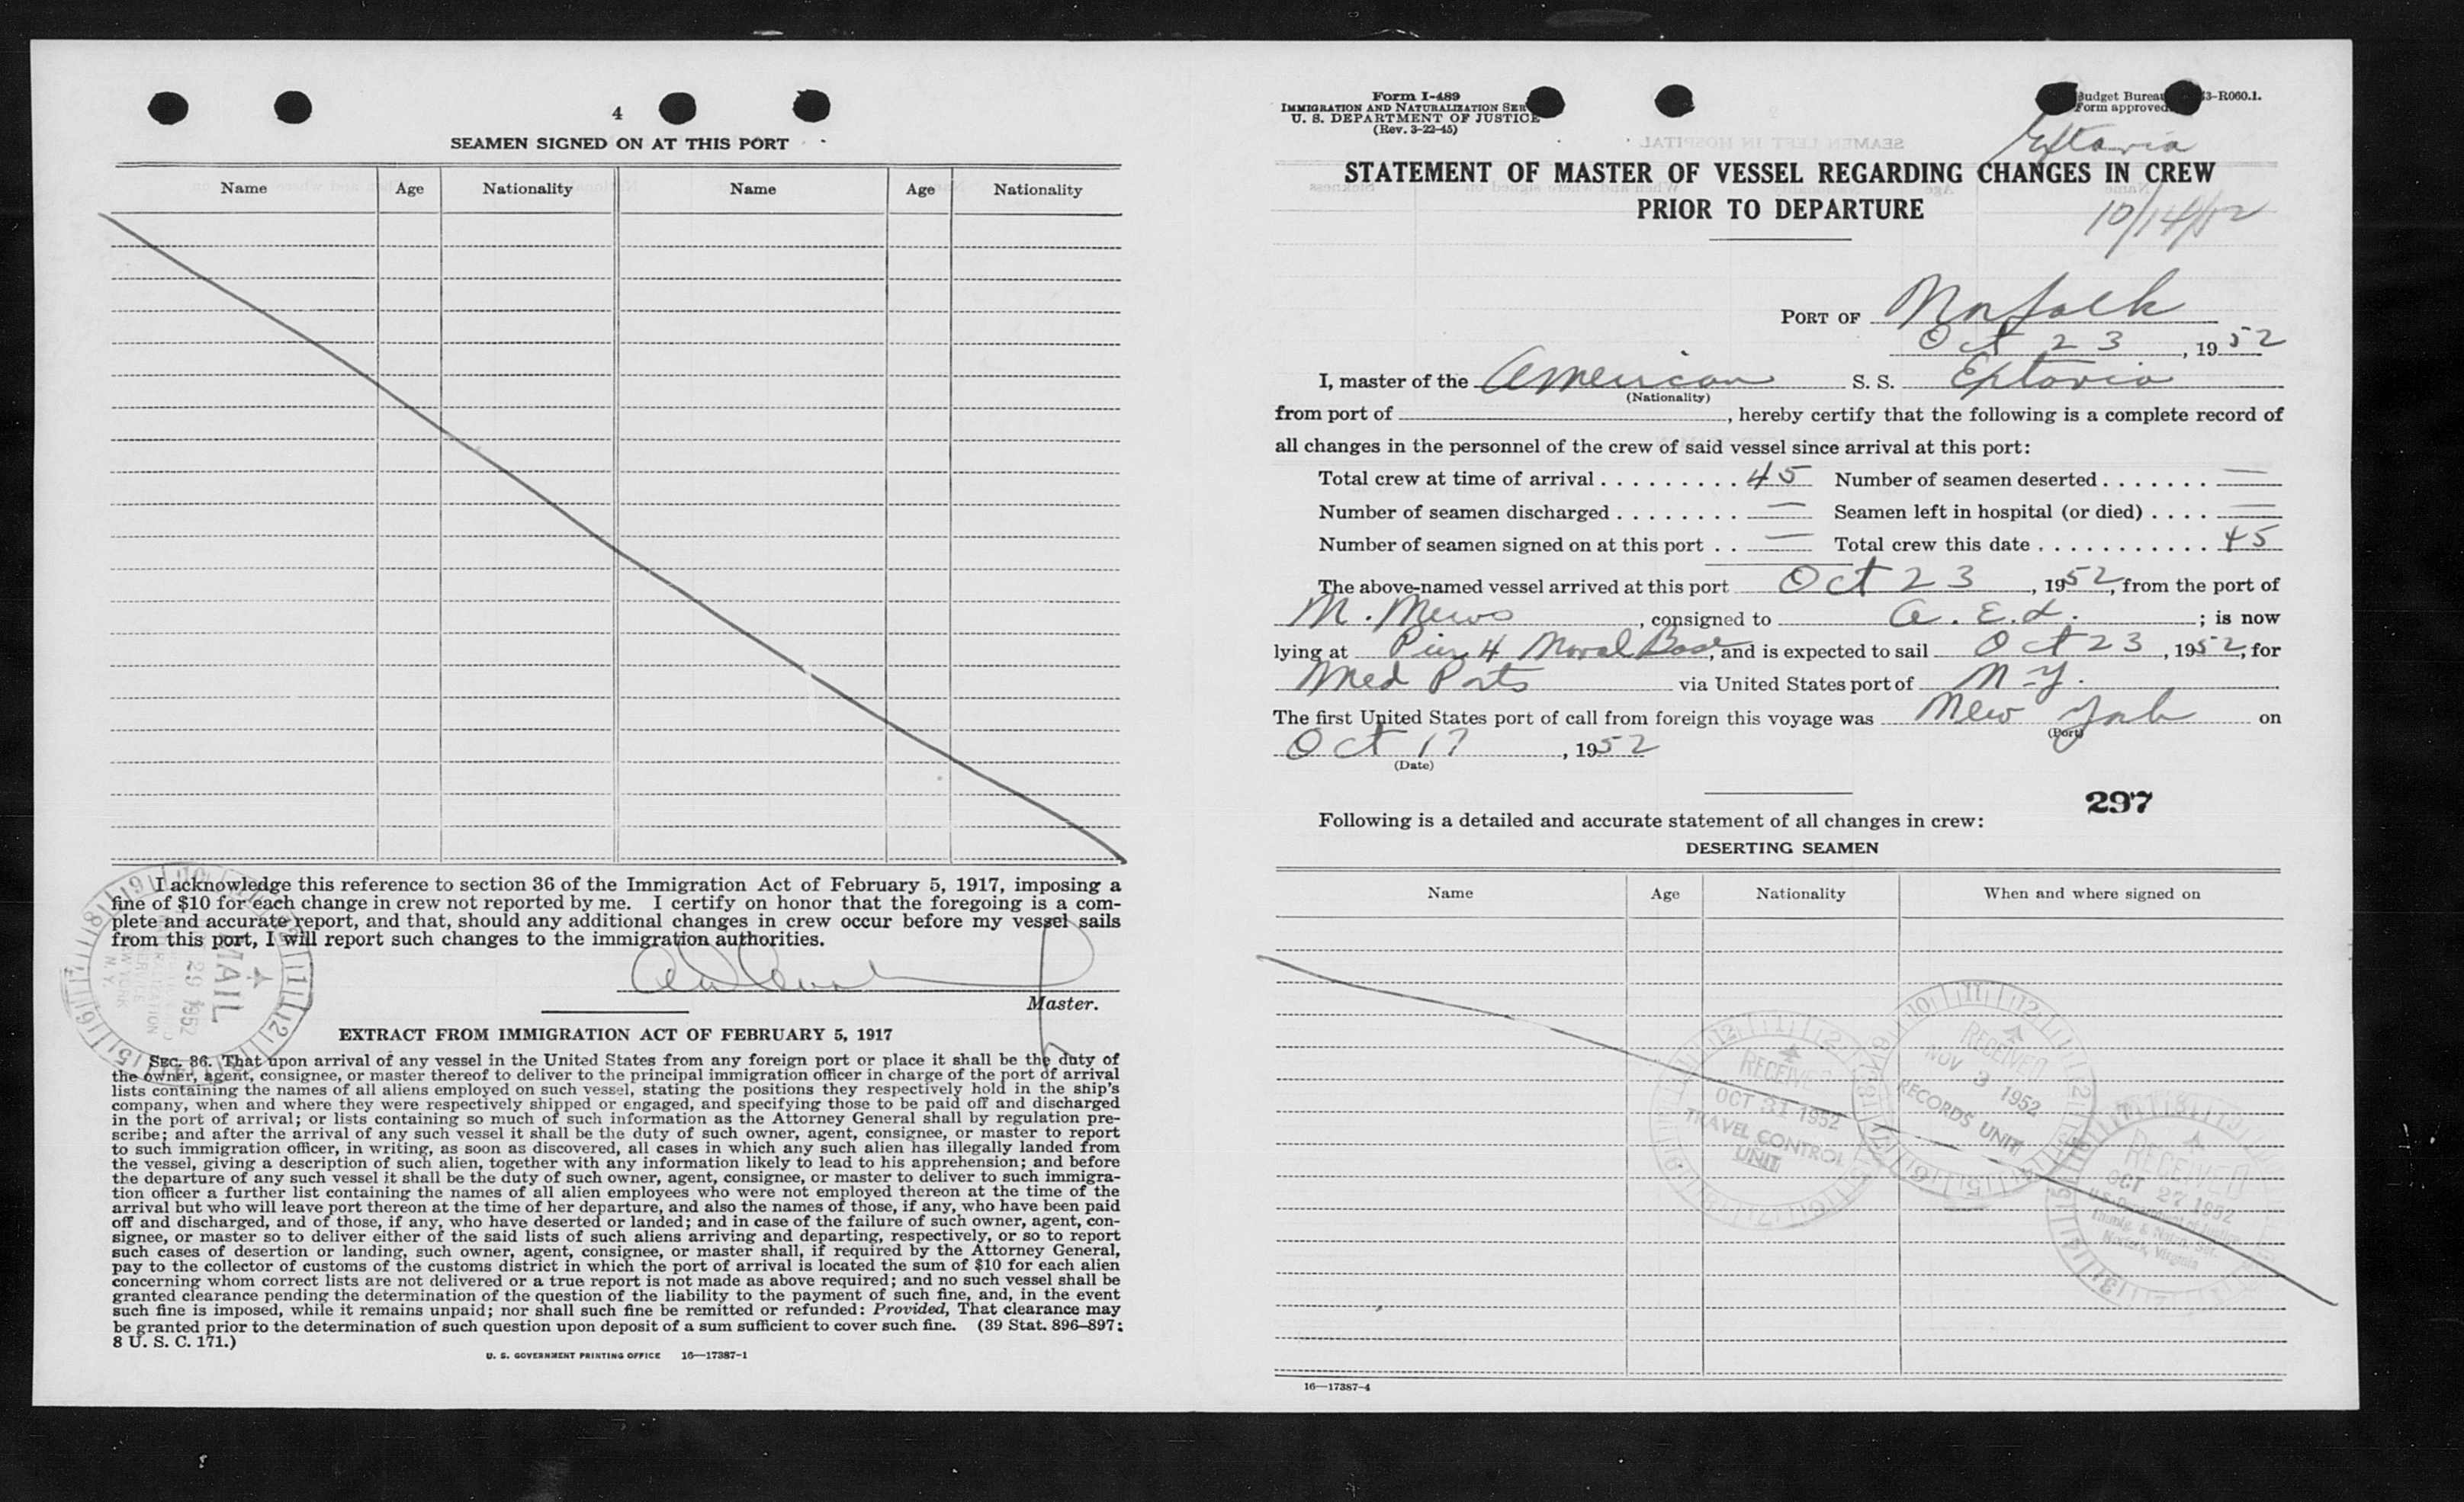 4
SEAMEN SIGNED ON AT THIS PORT
Name Age Nationality Name Age Nationality
I acknowledge this reference to section 36 of the Immigration Act of February 5, 1917, imposing a
fine of $10 for each change in crew not reported by me. I certify on honor that the foregoing is a com-
plete and accurate report, and that, should any additional changes in crew occur before my vessel sails
from this port, I will report such changes to the immigration authorities.
Master.
MAIL
29 1952
EXTRACT FROM IMMIGRATION ACT OF FEBRUARY 5, 1917
SEC. 36. That upon arrival of any vessel in the United States from any foreign port or place it shall be the duty of
the owner, agent, consignee, or master thereof to deliver to the principal immigration officer in charge of the port of arrival
lists containing the names of all aliens employed on such vessel, stating the positions they respectively hold in the ship's
company, when and where they were respectively shipped or engaged, and specifying those to be paid off and discharged
in the port of arrival; or lists containing so much of such information as the Attorney General shall by regulation pre-
scribe; and after the arrival of any such vessel it shall be the duty of such owner, agent, consignee, or master to report
to such immigration officer, in writing, as soon as discovered, all cases in which any such alien has illegally landed from
the vessel, giving a description of such alien, together with any information likely to lead to his apprehension; and before
the departure of any such vessel it shall be the duty of such owner, agent, consignee, or master to deliver to such immigra-
tion officer a further list containing the names of all alien employees who were not employed thereon at the time of the
arrival but who will leave port thereon at the time of her departure, and also the names of those, if any, who have been paid
off and discharged, and of those, if any, who have deserted or landed; and in case of the failure of such owner, agent, con-
signee, or master so to deliver either of the said lists of such aliens arriving and departing, respectively, or so to report
such cases of desertion or landing, such owner, agent, consignee, or master shall, if required by the Attorney General,
pay to the collector of customs of the customs district in which the port of arrival is located the sum of $10 for each alien
concerning whom correct lists are not delivered or a true report is not made as above required; and no such vessel shall be
granted clearance pending the determination of the question of the liability to the payment of such fine, and, in the event
such fine is imposed, while it remains unpaid; nor shall such fine be remitted or refunded: Provided, That clearance may
be granted prior to the determination of such question upon deposit of a sum sufficient to cover such fine. (39 Stat. 896–897;
8 U. S. C. 171.)
U. S. GOVERNMENT PRINTING OFFICE 16—17387-1
Form I-489
IMMIGRATION AND NATURALIZATION SER
U. S. DEPARTMENT OF JUSTICE
(Rev. 3-22-45)
Budget Bureau 43-R060.1.
Form approved
Extavia
STATEMENT OF MASTER OF VESSEL REGARDING CHANGES IN CREW
PRIOR TO DEPARTURE
10/14/52
PORT OF Norfolk
Oct 23, 1952
I, master of the American S. S. Extavia
(Nationality)
from port of , hereby certify that the following is a complete record of
all changes in the personnel of the crew of said vessel since arrival at this port:
Total crew at time of arrival 45 Number of seamen deserted —
Number of seamen discharged — Seamen left in hospital (or died) —
Number of seamen signed on at this port — Total crew this date 45
The above-named vessel arrived at this port Oct 23, 1952, from the port of
N. News, consigned to A. E. L.; is now
lying at Pier 4 Naval Base, and is expected to sail Oct 23, 1952, for
Med Ports via United States port of N-Y.
The first United States port of call from foreign this voyage was New York on
(Port)
Oct 17, 1952
(Date)
297
Following is a detailed and accurate statement of all changes in crew:
DESERTING SEAMEN
Name Age Nationality When and where signed on
RECEIVED
OCT 31 1952
TRAVEL CONTROL
UNIT
RECEIVED
NOV 3 1952
RECORDS UNIT
RECEIVED
OCT 27 1952
U.S. Department of Justice
Immig. & Natzn. Ser.
Norfolk, Virginia
16—17387-4